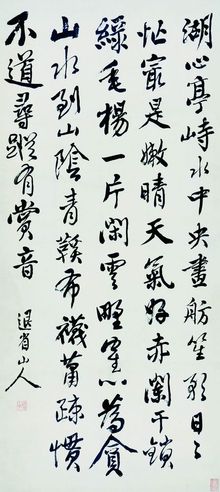 湖心亭峙水中央畫舫笙歌日〻
忙最是嫩晴天氣好赤闌干鎖
綠毛楊一片閑雲野寉心為貪
山水到山陰青鞵布襪蕭疏慣
不道尋蹤有賞音
退省山人